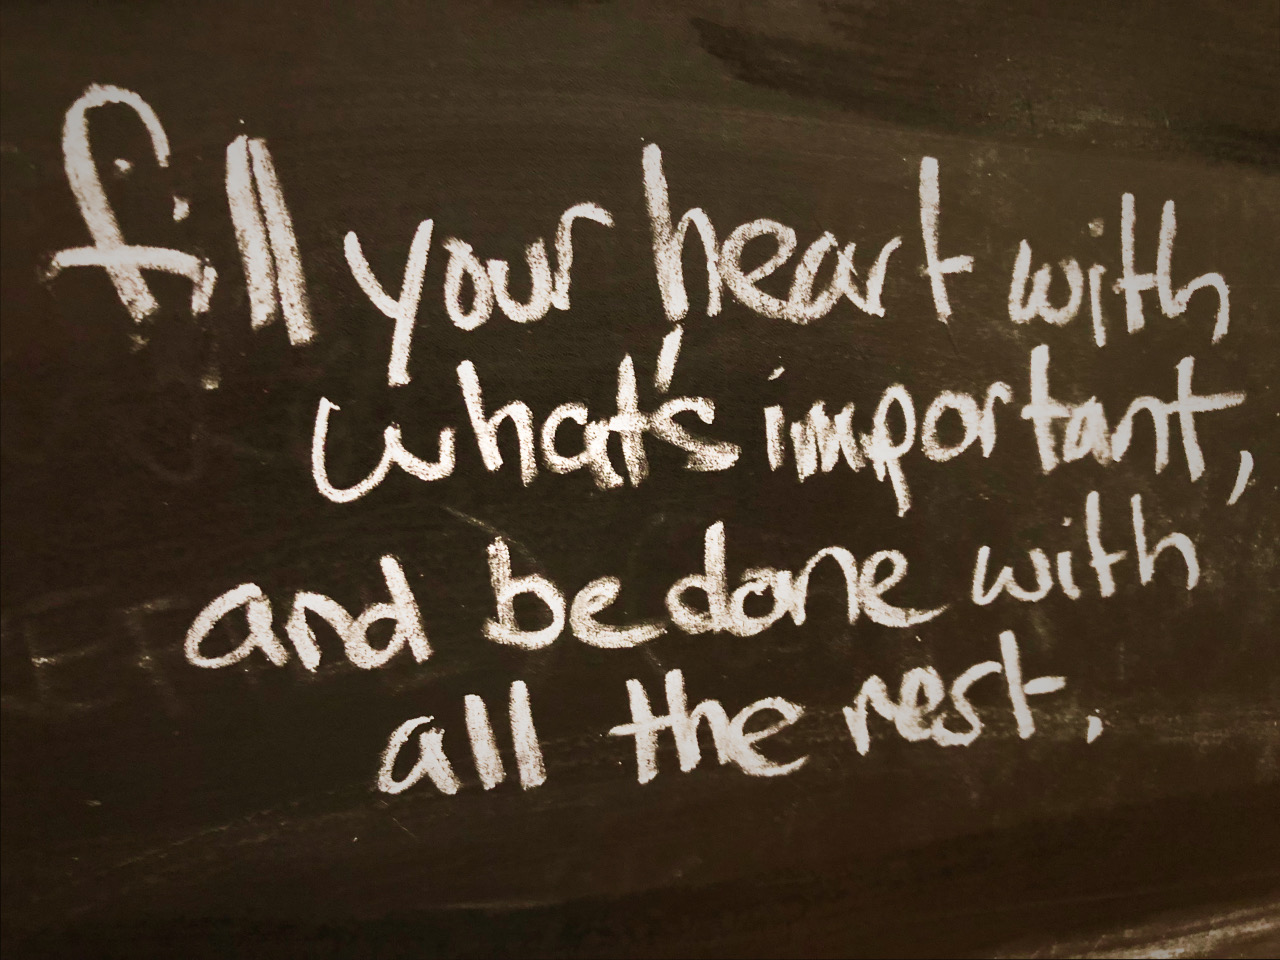 fill your heart with
what's important,
and be done with
all the rest.